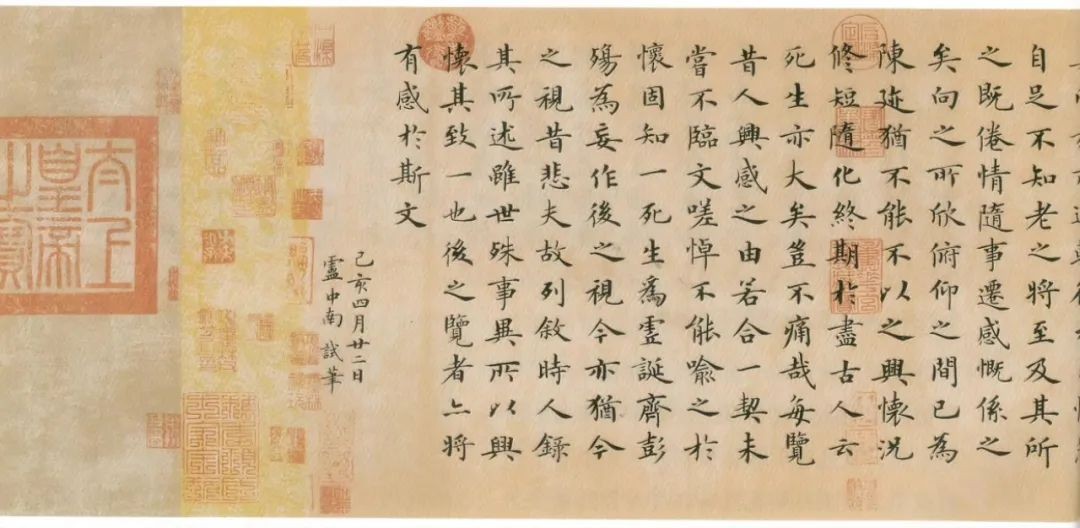 自足不知老之將至及其所
之既倦情隨事遷感慨係之
矣向之所欣俯仰之間已為
陳迹猶不能不以之興懷況
修短隨化終期於盡古人云
死生亦大矣豈不痛哉每覽
昔人興感之由若合一契未
嘗不臨文嗟悼不能喻之於
懷固知一死生爲虛誕齊彭
殤為妄作後之視今亦猶今
之視昔悲夫故列敘時人錄
其所述雖世殊事異所以興
懷其致一也後之覽者亦將
有感於斯文
己亥四月廿二日
盧中南試筆
太上
皇帝
之寶